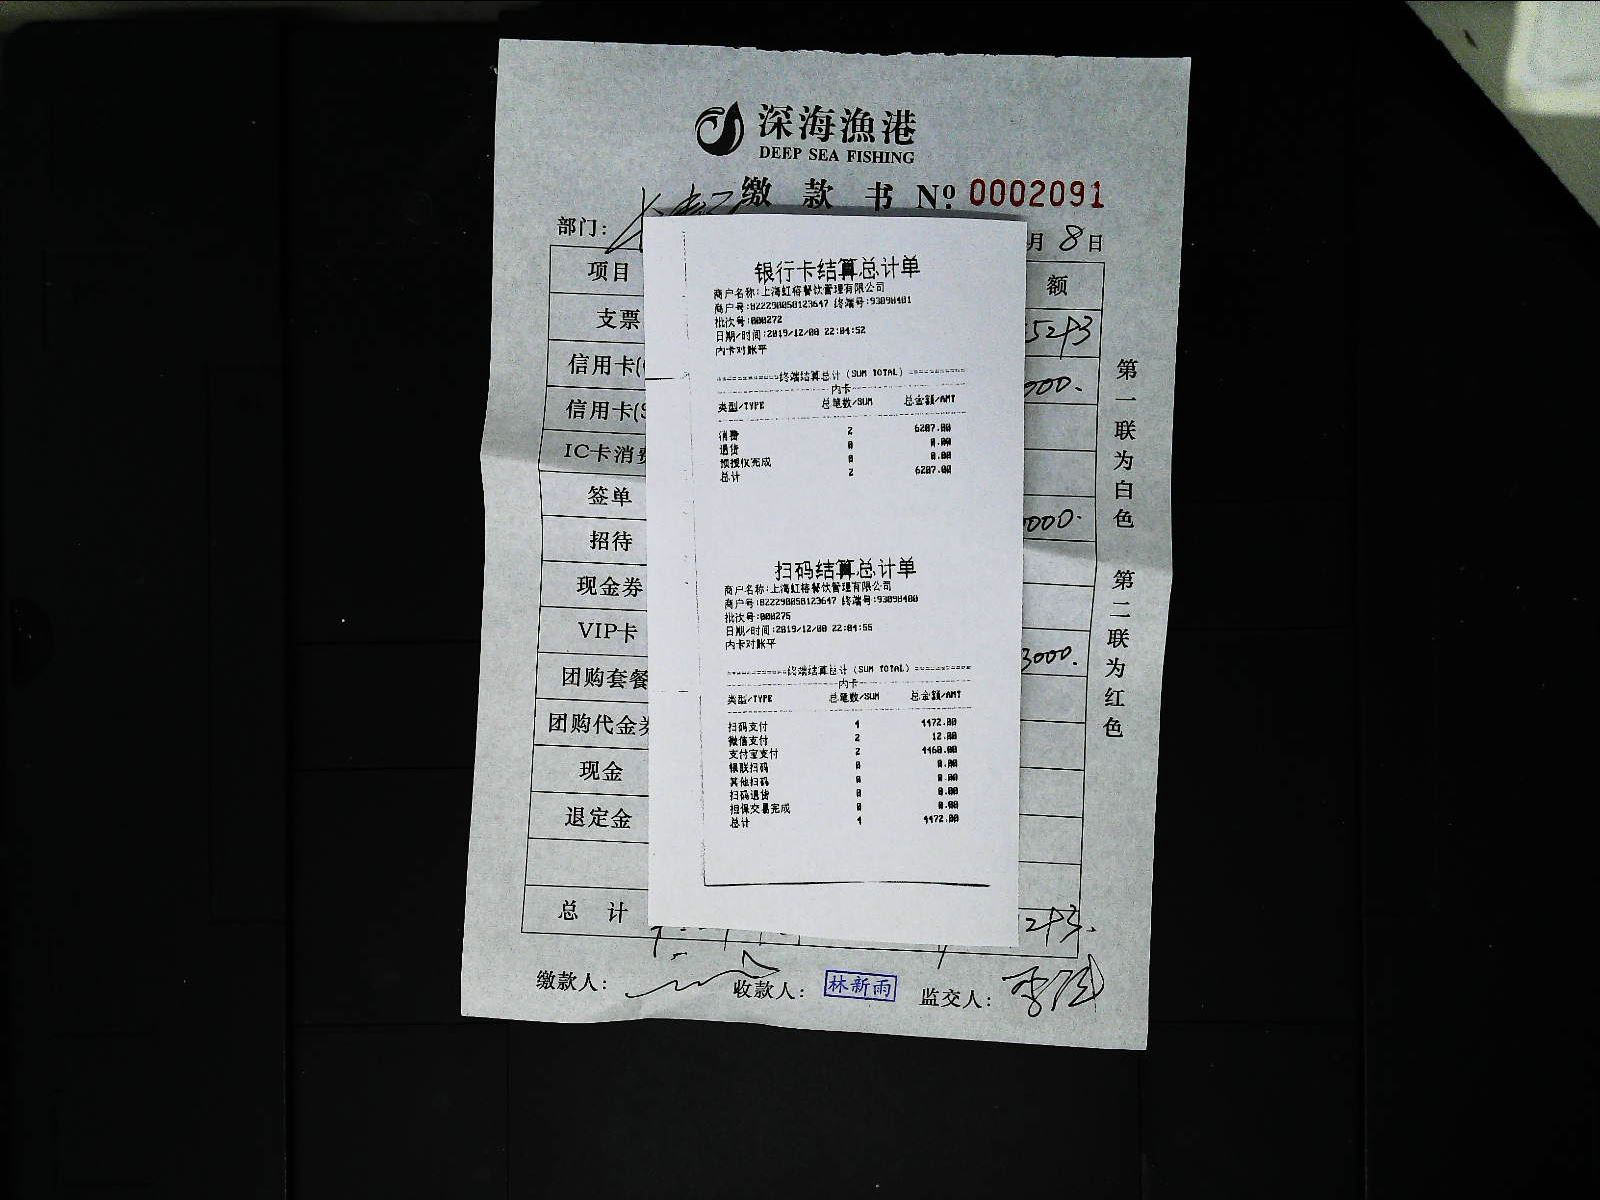 深海漁港
DEEP SEA FISHING
缴款书 №: 0002091
部门:
月 8 日
项目
额
支票
信用卡(
信用卡(S
000.
IC卡消费
签单
招待
现金券
VIP卡
3000.
团购套餐
团购代金券
现金
退定金
总 计
缴款人:
收款人: 林新雨
监交人:
第一联为白色 第二联为红色
银行卡结算总计单
商户名称:上海虹禧餐饮管理有限公司
商户号:822290058123647 终端号:93090401
批次号:000272
日期/时间:2019/12/08 22:04:52
内卡对账平
终端结算总计 (SUM TOTAL)
内卡
类型/TYPE 总笔数/SUM 总金额/AMT
消费 2 6207.00
退货 0 0.00
预授权完成 0 0.00
总计 2 6207.00
扫码结算总计单
商户名称:上海虹禧餐饮管理有限公司
商户号:822290058123647 终端号:93090400
批次号:000275
日期/时间:2019/12/08 22:04:55
内卡对账平
终端结算总计 (SUM TOTAL)
内卡
类型/TYPE 总笔数/SUM 总金额/AMT
扫码支付 4 4472.00
微信支付 2 12.00
支付宝支付 2 4460.00
银联扫码 0 0.00
其他扫码 0 0.00
扫码退货 0 0.00
担保交易完成 0 0.00
总计 4 4472.00